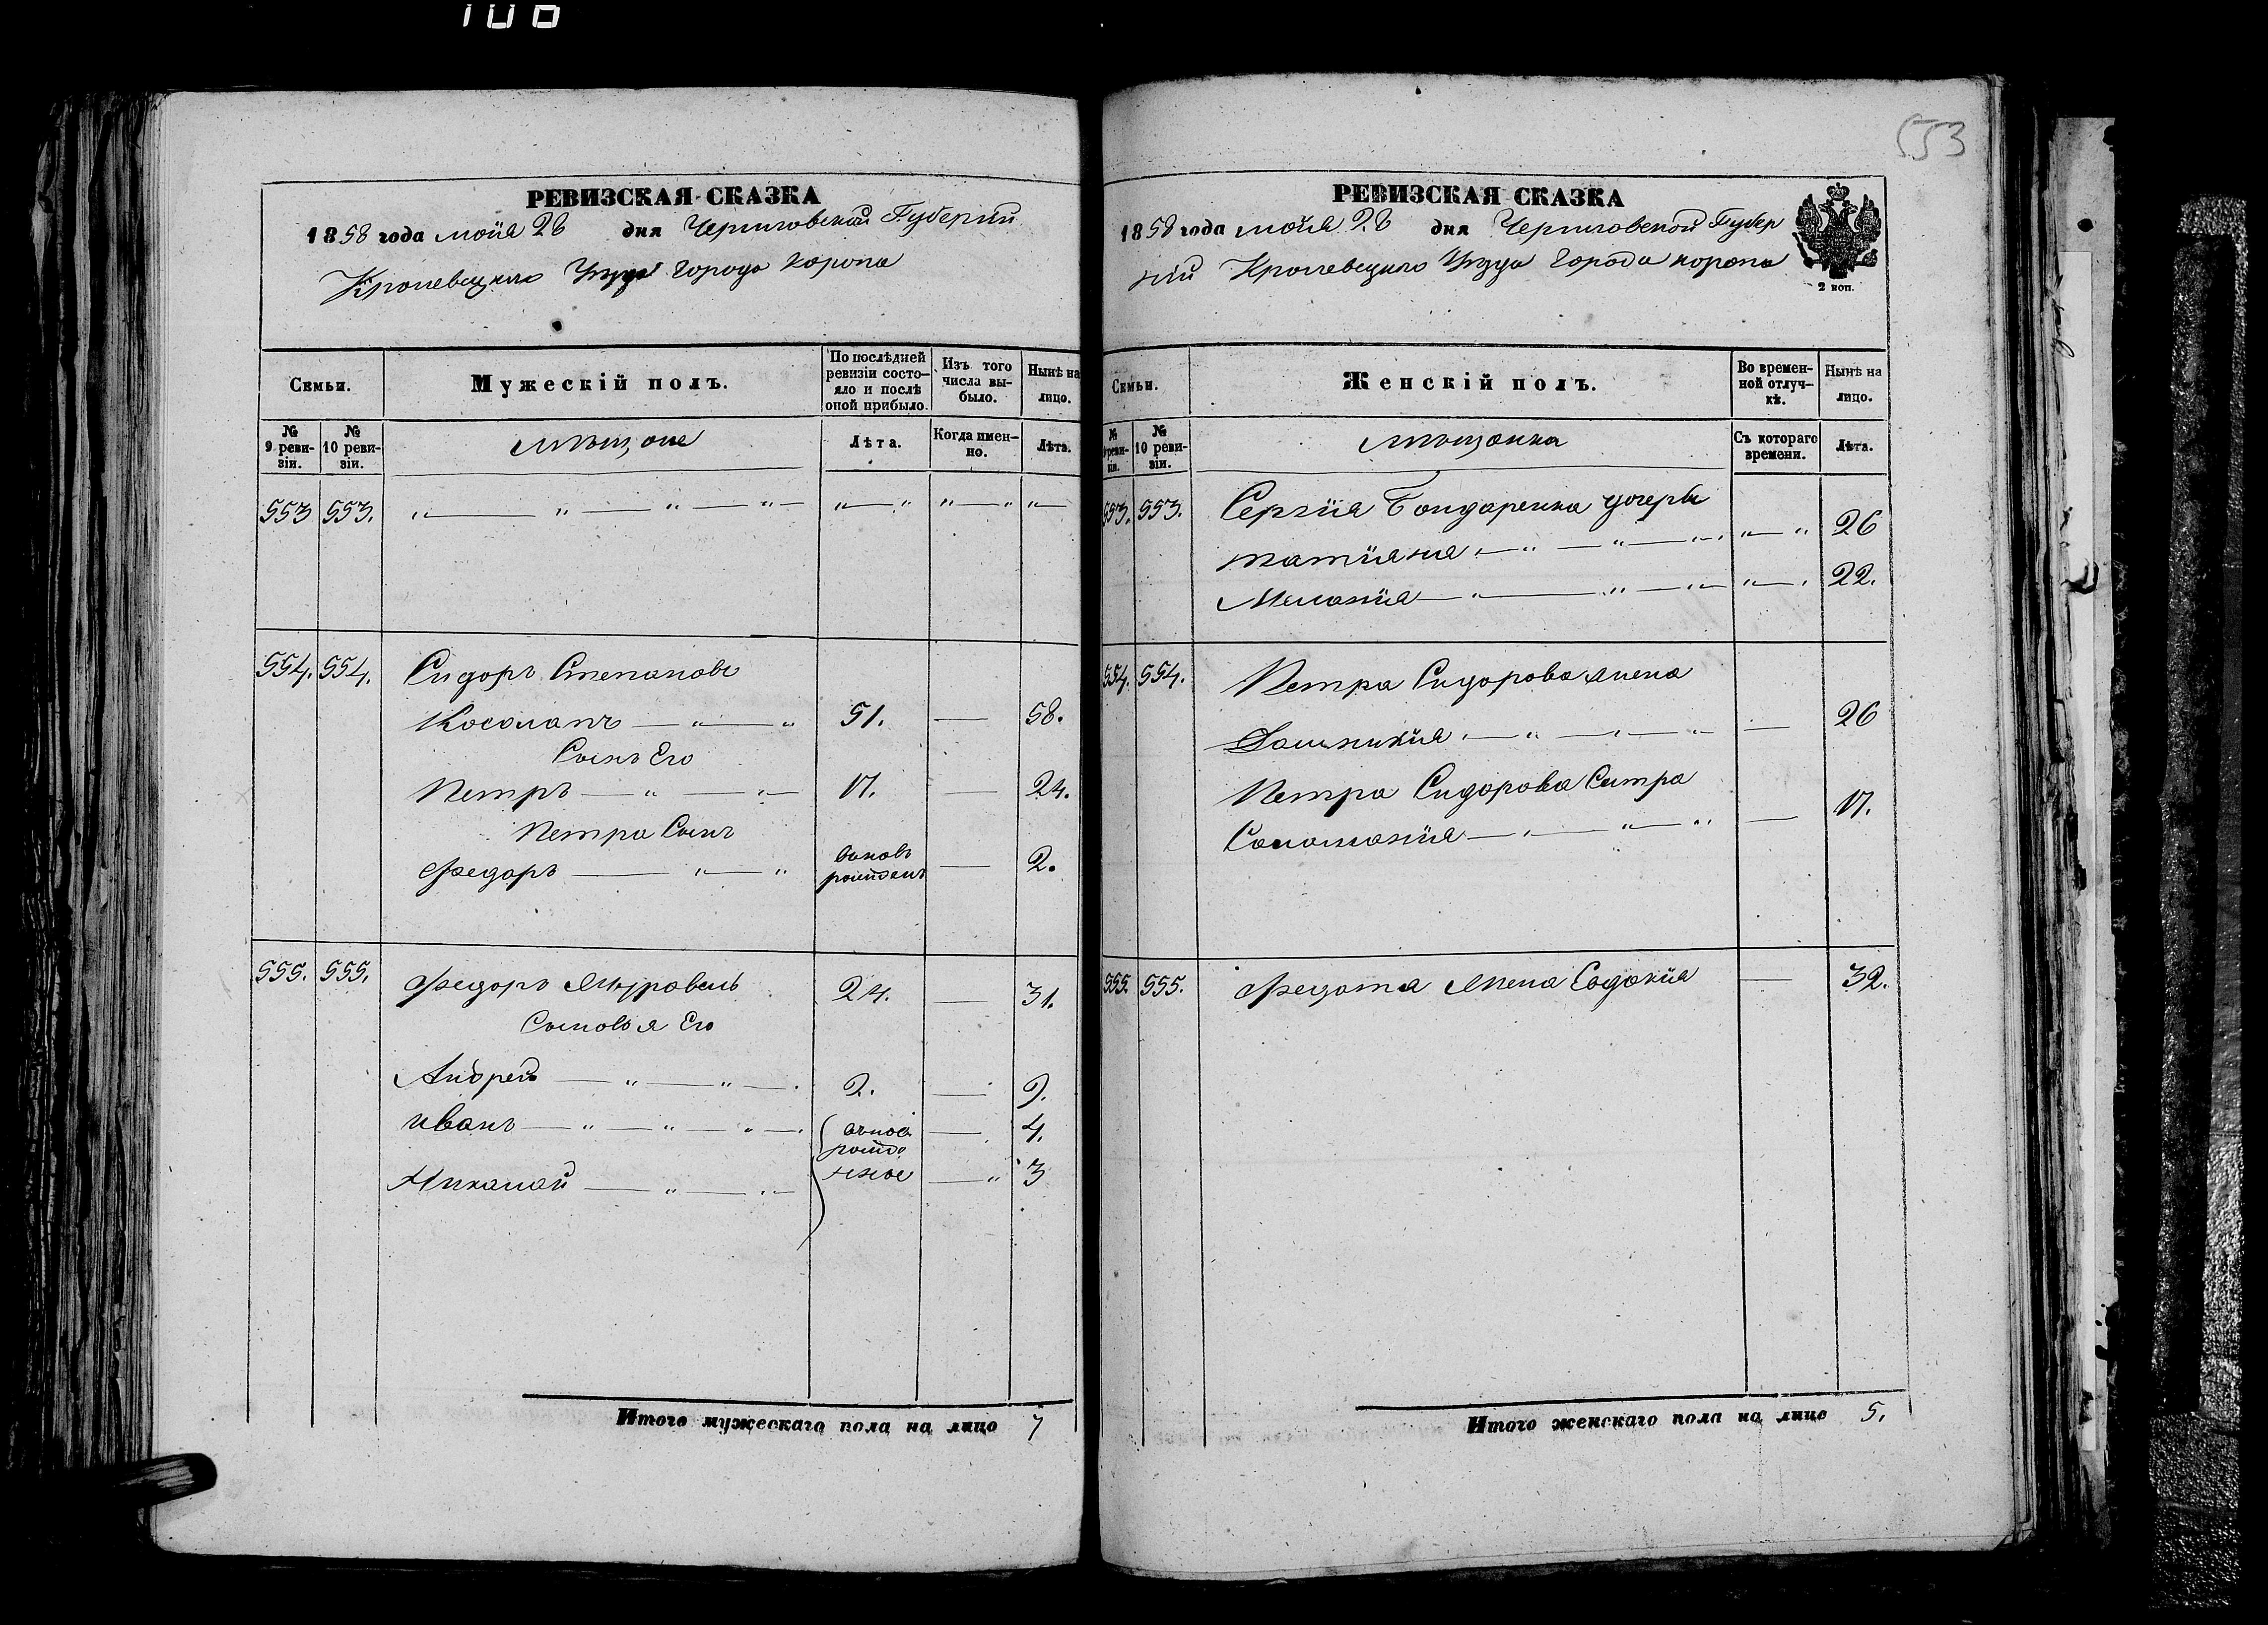 106
РЕВИЗСКАЯ СКАЗКА
1858 года мойя 26 дня Черниговской Губернии
Кролевецкаго Уезда города Коропа
Семьи.
Мужескій полъ.
По послѣдней ревизіи состояло и послѣ оной прибыло.
Изъ того числа выбыло.
Нынѣ на лицо.
№ 9 ревизіи.
№ 10 ревизіи.
мѣщане
Лѣта.
Когда именно.
Лѣта.
553 553.
554. 554. Сидоръ Степановъ
Косолапъ 51. 58.
Сынъ Его
Петръ 17. 24.
Петра Сынъ
Федоръ вновь рожденъ 2.
555. 555. Федоръ Журавель 24. 31.
Сыновья Его
Андрей 2. 9.
Иванъ 4.
Николай 3
Итого мужескаго пола на лицо 7
553
РЕВИЗСКАЯ СКАЗКА
1858 года мойя 26 дня Черниговской Губер
ніи Кролевецкаго Уезда Города коропа
2 коп.
Семьи.
Женскій полъ.
Во временной отлучкѣ.
Нынѣ на лицо.
№ 9 ревизіи.
№ 10 ревизіи.
мѣщанки
Съ котораго времени.
Лѣта.
553. 553. Сергія Бондаренка дочери
татіяна 26
Меланія 22.
554. 554. Петра Сидорова жена
26
Петра Сидорова Систра
Соломанія 17.
555. 555. Федота Жена Евдокия 32.
Итого женскаго пола на лицо 5.